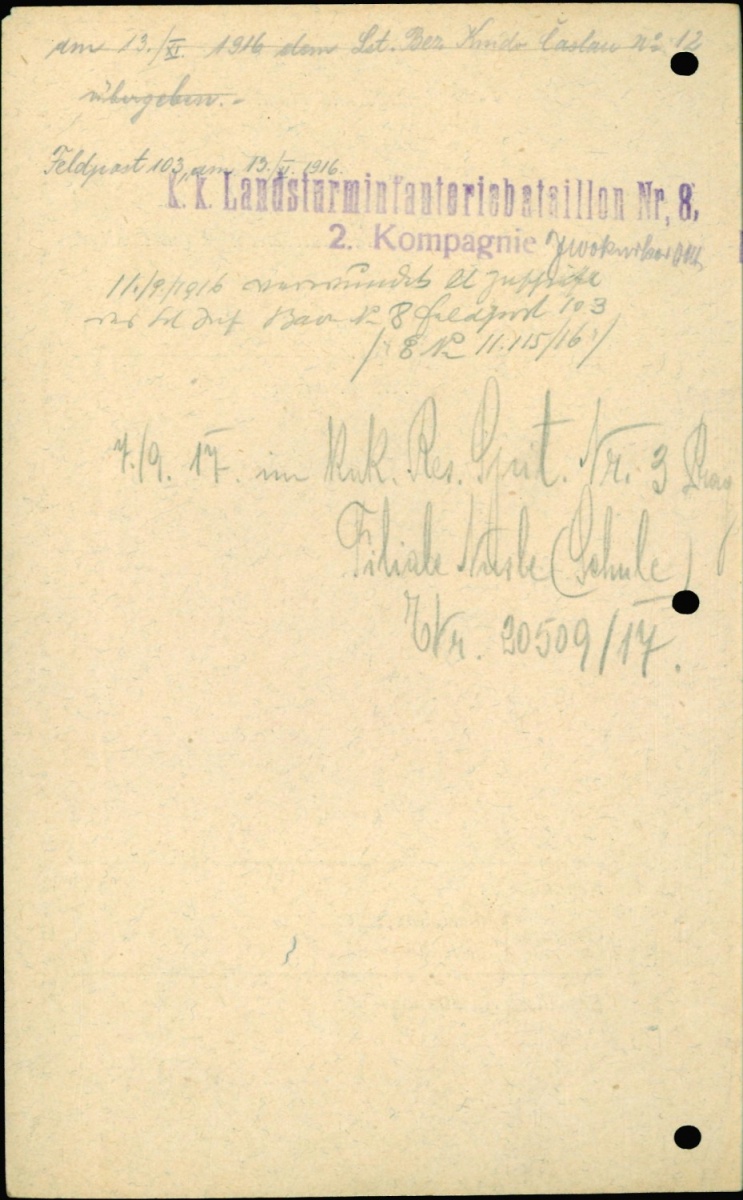 am 13./XI. 1916 dem Lst. Bez Kmdo Časlau No 12
übergeben.-
Feldpost 103, am 13./XI. 1916.
k. k. Landsturminfanteriebataillon Nr. 8.
2. Kompagnie
11./9/1916 verwundet lt Zuschrift
des Ld Inf Baon No 8 Feldpost 103
/ E No 11.115/16 /
7./9. 17. im k.u.k. Res. Spit. Nr. 3 Prag
Filiale Nusle (Schule)
ZNr. 20509/17.